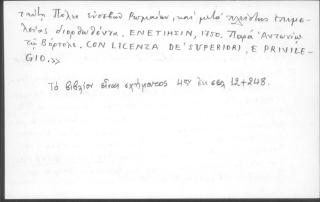 ταύτῃ Πόλει εὐσεβῶν Ρωμαίων, καί μετά πλείστης ἐπιμε-
λείας διορθωθέντα, ΕΝΕΤΙΗΣΙΝ, 1750. Παρά Ἀντωνίῳ
τῷ Βόρτολι. CON LICENZA DE' SUPERIORI, E PRIVILE-
GIO.>>
Τό βιβλίον εἶναι σχήματος 4ου ἐκ σελ 12+248.